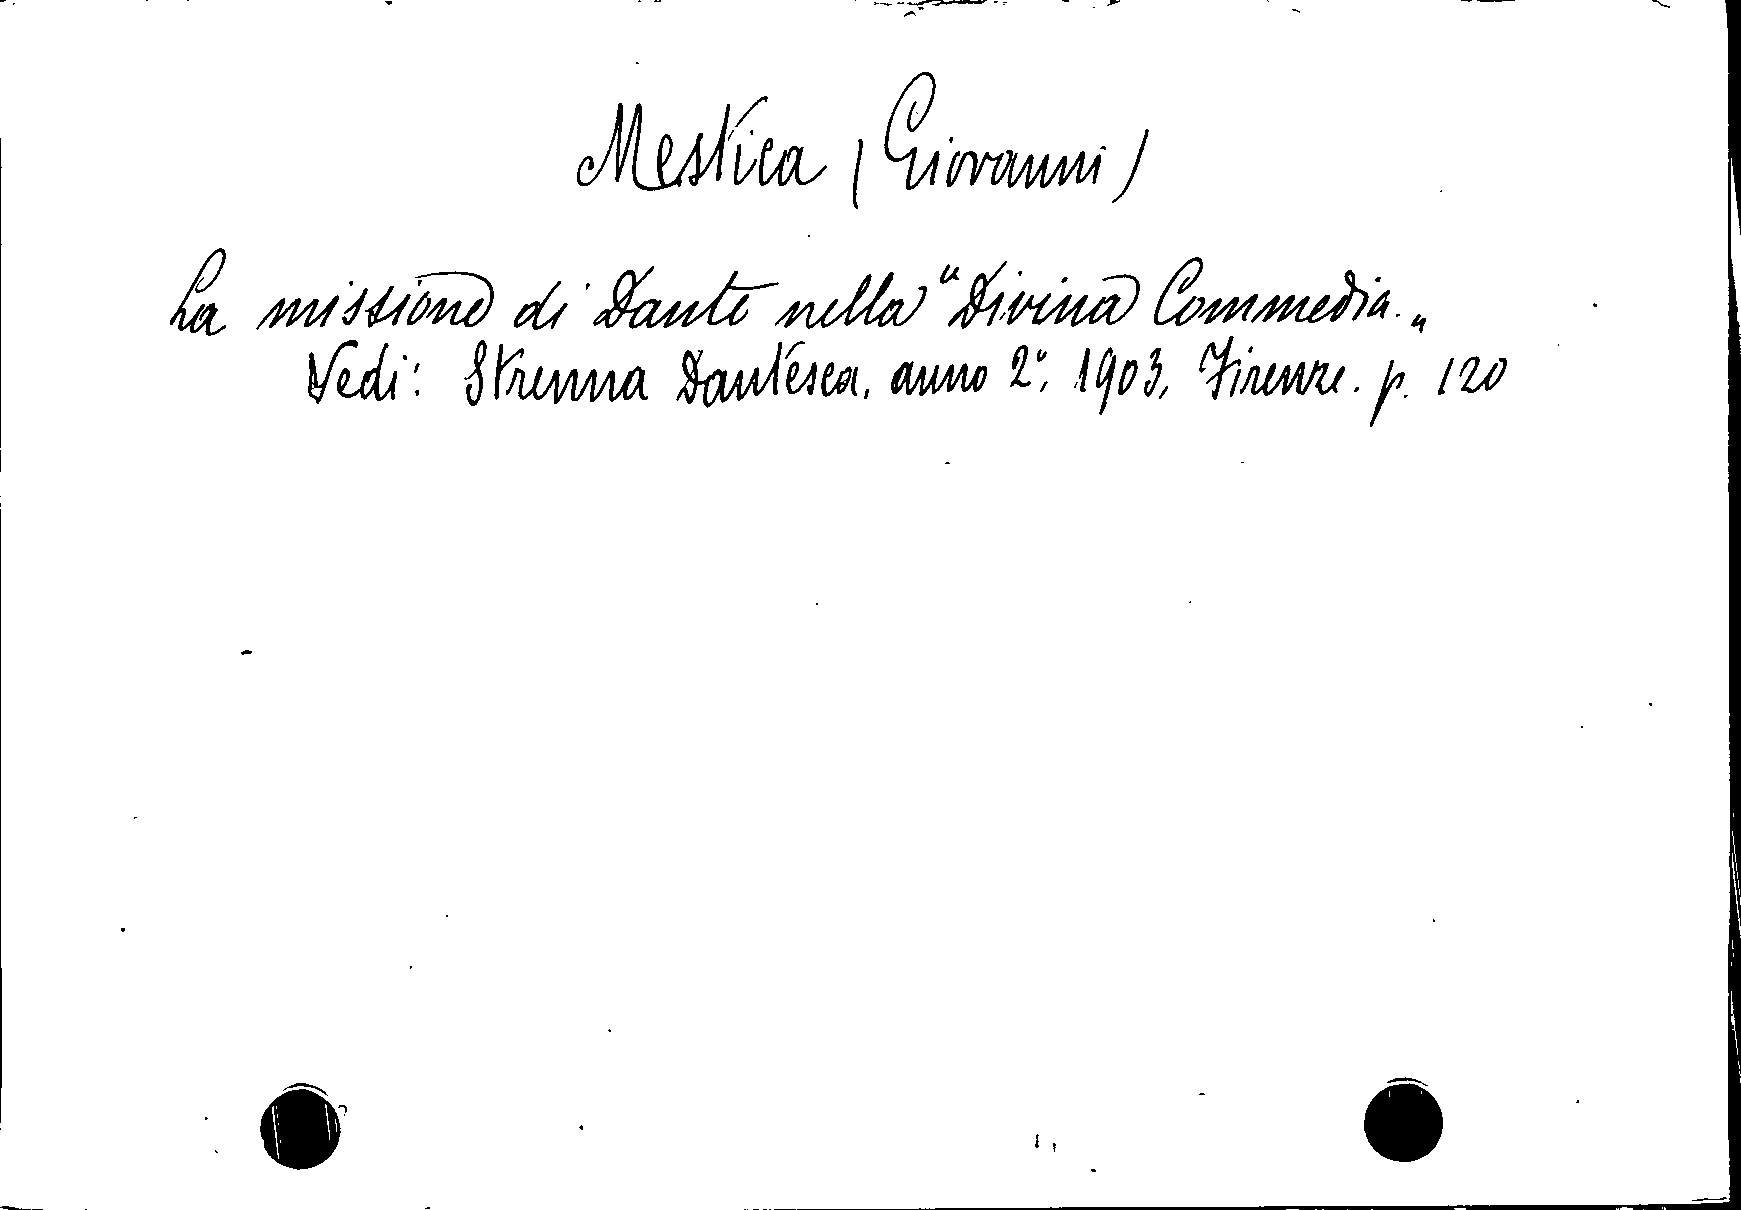 Mestica (Giovanni)
La missione di Dante nella "Divina Commedia.„
Vedi: Strenna Dantesca, anno 2º, 1903, Firenze. p. 120